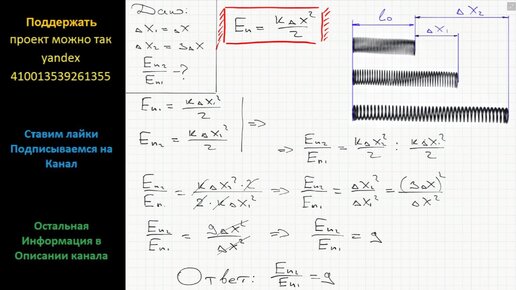 Поддержать
проект можно так
yandex
410013539261355
Ставим лайки
Подписываемся на
Канал
Остальная
Информация в
Описании канала
Дано:
Δx₁ = Δx
Δx₂ = 3Δx
Eп₂/Eп₁ - ?
Eп = kΔx²/2
l₀
Δx₂
Δx₁
Eп₁ = kΔx₁²/2
Eп₂ = kΔx₂²/2
=> Eп₂/Eп₁ = kΔx₂²/2 : kΔx₁²/2
Eп₂/Eп₁ = kΔx₂²·2/2·kΔx₁² => Eп₂/Eп₁ = Δx₂²/Δx₁² = (3Δx)²/Δx²
Eп₂/Eп₁ = 9Δx²/Δx² => Eп₂/Eп₁ = 9
Ответ: Eп₂/Eп₁ = 9